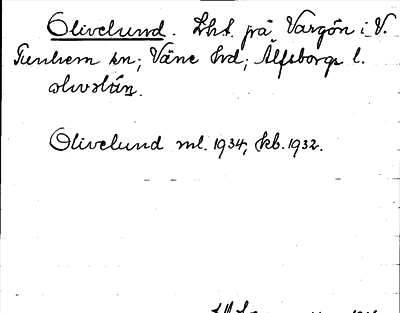 Olivelund. Lht. på Vargön i V.
Tunhem sn; Väne hrd; Älfsborgs l.
Olivelund ml. 1934, kb. 1932.